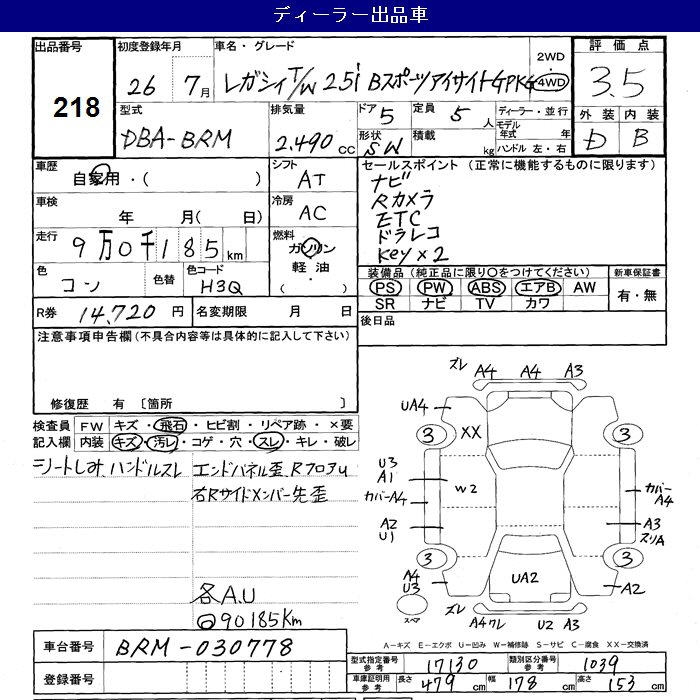 ディーラー出品車
出品番号
218
初度登録年月
26 7月
車名・グレード
レガシィT/W 2.5i BスポーツアイサイトGPKG
2WD
4WD
評価点
3.5
外装 内装
D B
型式
DBA-BRM
排気量
2.490 cc
ドア 5
定員 5 人
形状 SW
積載 kg
ディーラー・並行
モデル年式 年
ハンドル 左・右
車歴
自家用・( )
シフト
AT
車検
年 月( 日)
冷房
AC
走行
9万0千185km
燃料
ガソリン
軽油
・
色
コン
色替
色コード
H3Q
セールスポイント (正常に機能するものに限ります)
ナビ
Rカメラ
ETC
ドラレコ
Key×2
装備品(純正品に限り○をつけてください)
PS PW ABS エアB AW
SR ナビ TV カワ
新車保証書
有・無
R券 14,720 円
名変期限 月 日
後日品
注意事項申告欄(不具合内容等は具体的に記入して下さい)
修復歴 有 〔箇所 〕
検査員記入欄
FW キズ・飛石・ヒビ割・リペア跡・×要
内装 キズ・汚レ・コゲ・穴・スレ・キレ・破レ
シートしみ、ハンドルスレ
エンドパネル歪、RフロアU
右Rサイドメンバー先歪
各A.U
90185Km
ズレ A4 A4 A3
UA4
XX
3 3
U3
A1
カバーA4
W2
カバーA4
A2
U1
A3
スリA
3 3
A4
U3
UA2
A2
スペア
ズレ A4ワレ U2 A3
A－キズ E－エクボ U－凹み W－補修跡 S－サビ C－腐食 XX－交換済
車台番号
BRM-030778
登録番号
型式指定番号参考 17130
類別区分番号参考 1039
車庫証明用参考 長さ 479cm 幅 178cm 高さ 153cm